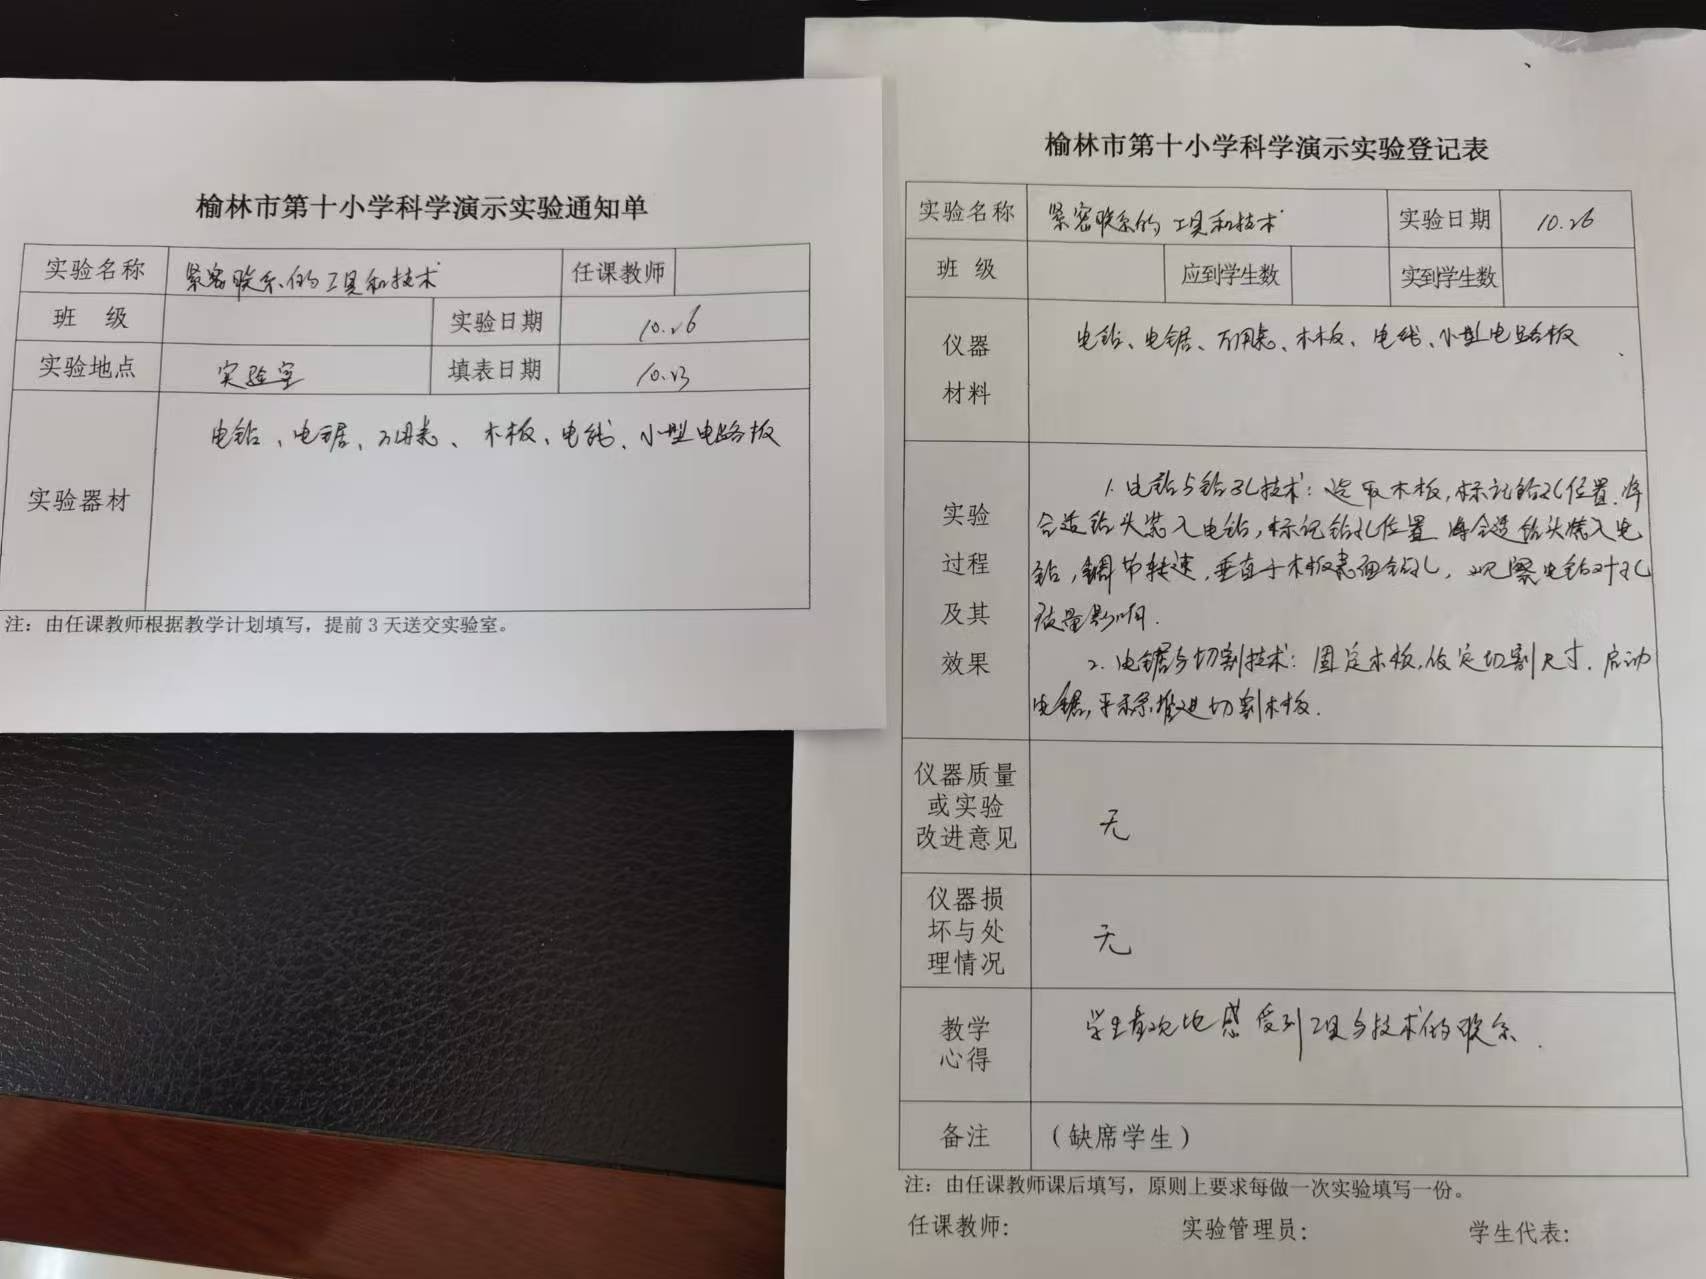 榆林市第十小学科学演示实验通知单
实验名称 紧密联系的工具和技术 任课教师
班 级 实验日期 10.26
实验地点 实验室 填表日期 10.23
实验器材 电钻、电锯、万用表、木板、电线、小型电路板
注：由任课教师根据教学计划填写，提前3天送交实验室。
榆林市第十小学科学演示实验登记表
实验名称 紧密联系的工具和技术 实验日期 10.26
班 级 应到学生数 实到学生数
仪器材料 电钻、电锯、万用表、木板、电线、小型电路板
实验过程及其效果
1. 电钻与钻孔技术：选取木板，标记钻孔位置，将
合适钻头装入电钻，标记钻孔位置 将合适钻头装入电
钻，调节转速，垂直于木板表面钻孔，观察电钻对孔
质量影响.
2. 电锯与切割技术：固定木板，设定切割尺寸，启动
电锯，平稳推进切割木板.
仪器质量或实验改进意见 无
仪器损坏与处理情况 无
教学心得 学生直观地感受到工具与技术的联系.
备注 （缺席学生）
注：由任课教师课后填写，原则上要求每做一次实验填写一份。
任课教师: 实验管理员: 学生代表: